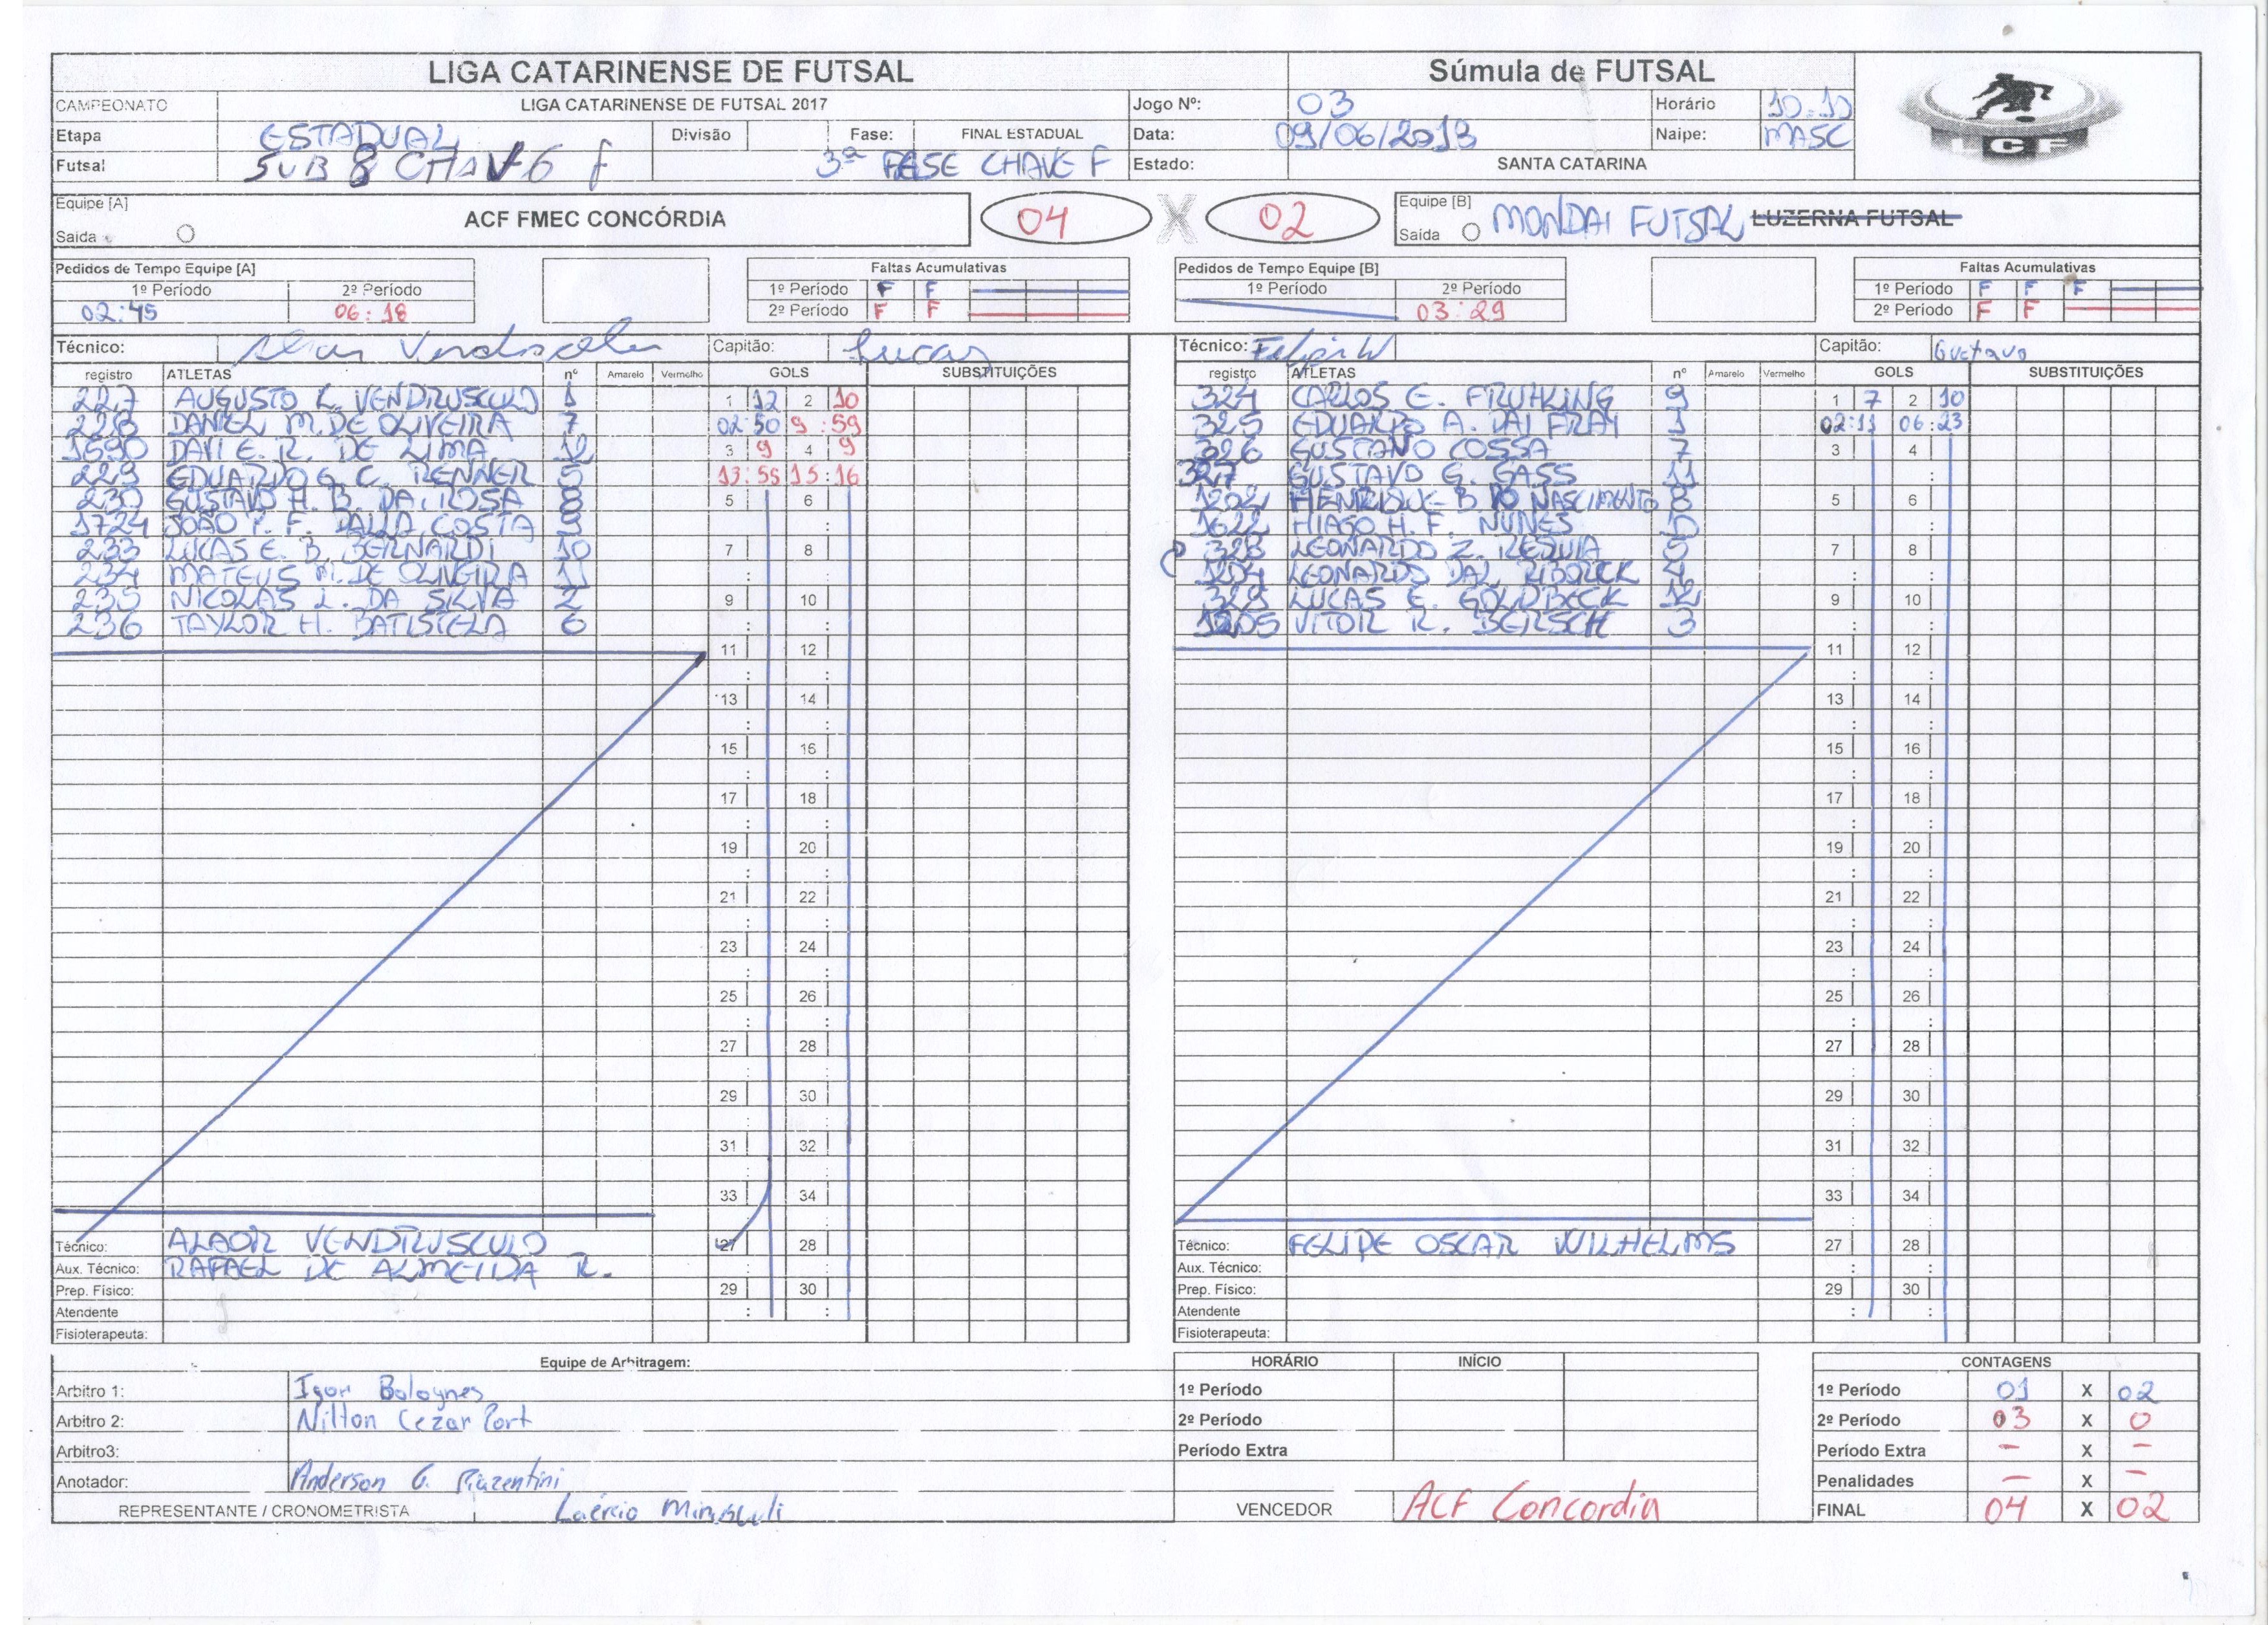 LIGA CATARINENSE DE FUTSAL Súmula de FUTSAL
CAMPEONATO LIGA CATARINENSE DE FUTSAL 2017 Jogo Nº: 03 Horário 10:10
Etapa ESTADUAL Divisão Fase: FINAL ESTADUAL Data: 09/06/2018 Naipe: MASC
Futsal SUB 8 CHAVE F 3ª FASE CHAVE F Estado: SANTA CATARINA
LCF
Equipe [A] ACF FMEC CONCÓRDIA 04 X 02 Equipe [B] MONDAI FUTSAL LUZERNA FUTSAL
Saída Saída
Pedidos de Tempo Equipe [A] Faltas Acumulativas Pedidos de Tempo Equipe [B] Faltas Acumulativas
1º Período 2º Período 1º Período F F 1º Período 2º Período 1º Período F F F
02:45 06:18 2º Período F F 03:29 2º Período F F
Técnico: Capitão: Lucas Técnico: Felipe W Capitão: Gustavo
registro ATLETAS nº Amarelo Vermelho GOLS SUBSTITUIÇÕES registro ATLETAS nº Amarelo Vermelho GOLS SUBSTITUIÇÕES
227 AUGUSTO K. VENDRUSCULO 1 1 12 2 10 324 CARLOS E. FRUHKING 9 1 7 2 10
228 DANIEL M. DE OLIVEIRA 7 02:50 9:59 325 EDUARDO A. DAI PRAY 1 02:11 06:23
1690 DAVI E. R. DE LIMA 12 3 9 4 9 326 GUSTAVO COSSA 7 3 4
229 EDUARDO G. C. RENNER 5 13:55 15:16 327 GUSTAVO G. GASS 11
230 GUSTAVO H. B. DA ROSA 8 5 6 1202 HENRIQUE B. DO NASCIMENTO 8 5 6
1724 JOÃO P. F. DALLA COSTA 9 1622 HIAGO H. F. NUNES 10
233 LUCAS E. B. BERNARDI 10 7 8 328 LEONARDO Z. 5 7 8
234 MATEUS M. DE OLIVEIRA 11 1204 LEONARDO DAL 4
235 NICOLAS L. DA SILVA 2 9 10 329 LUCAS E. GOLDBECK 12 9 10
236 TAYLOR H. BATISTELA 6 1205 VITOR R. BERSCH 3
11 12 11 12
13 14 13 14
15 16 15 16
17 18 17 18
19 20 19 20
21 22 21 22
23 24 23 24
25 26 25 26
27 28 27 28
29 30 29 30
31 32 31 32
33 34 33 34
Técnico: ALAOR VENDRUSCULO 27 28 Técnico: FELIPE OSCAR WILHELMS 27 28
Aux. Técnico: RAFAEL DE ALMEIDA R. Aux. Técnico:
Prep. Físico: 29 30 Prep. Físico: 29 30
Atendente Atendente
Fisioterapeuta: Fisioterapeuta:
Equipe de Arbitragem: HORÁRIO INÍCIO CONTAGENS
Arbitro 1: Igor Bolognes 1º Período 1º Período 01 X 02
Arbitro 2: Nilton Cezar Port 2º Período 2º Período 03 X 0
Arbitro3: Período Extra Período Extra - X -
Anotador: Anderson G. Piazentini Penalidades - X -
REPRESENTANTE / CRONOMETRISTA Laércio VENCEDOR ACF Concordia FINAL 04 X 02